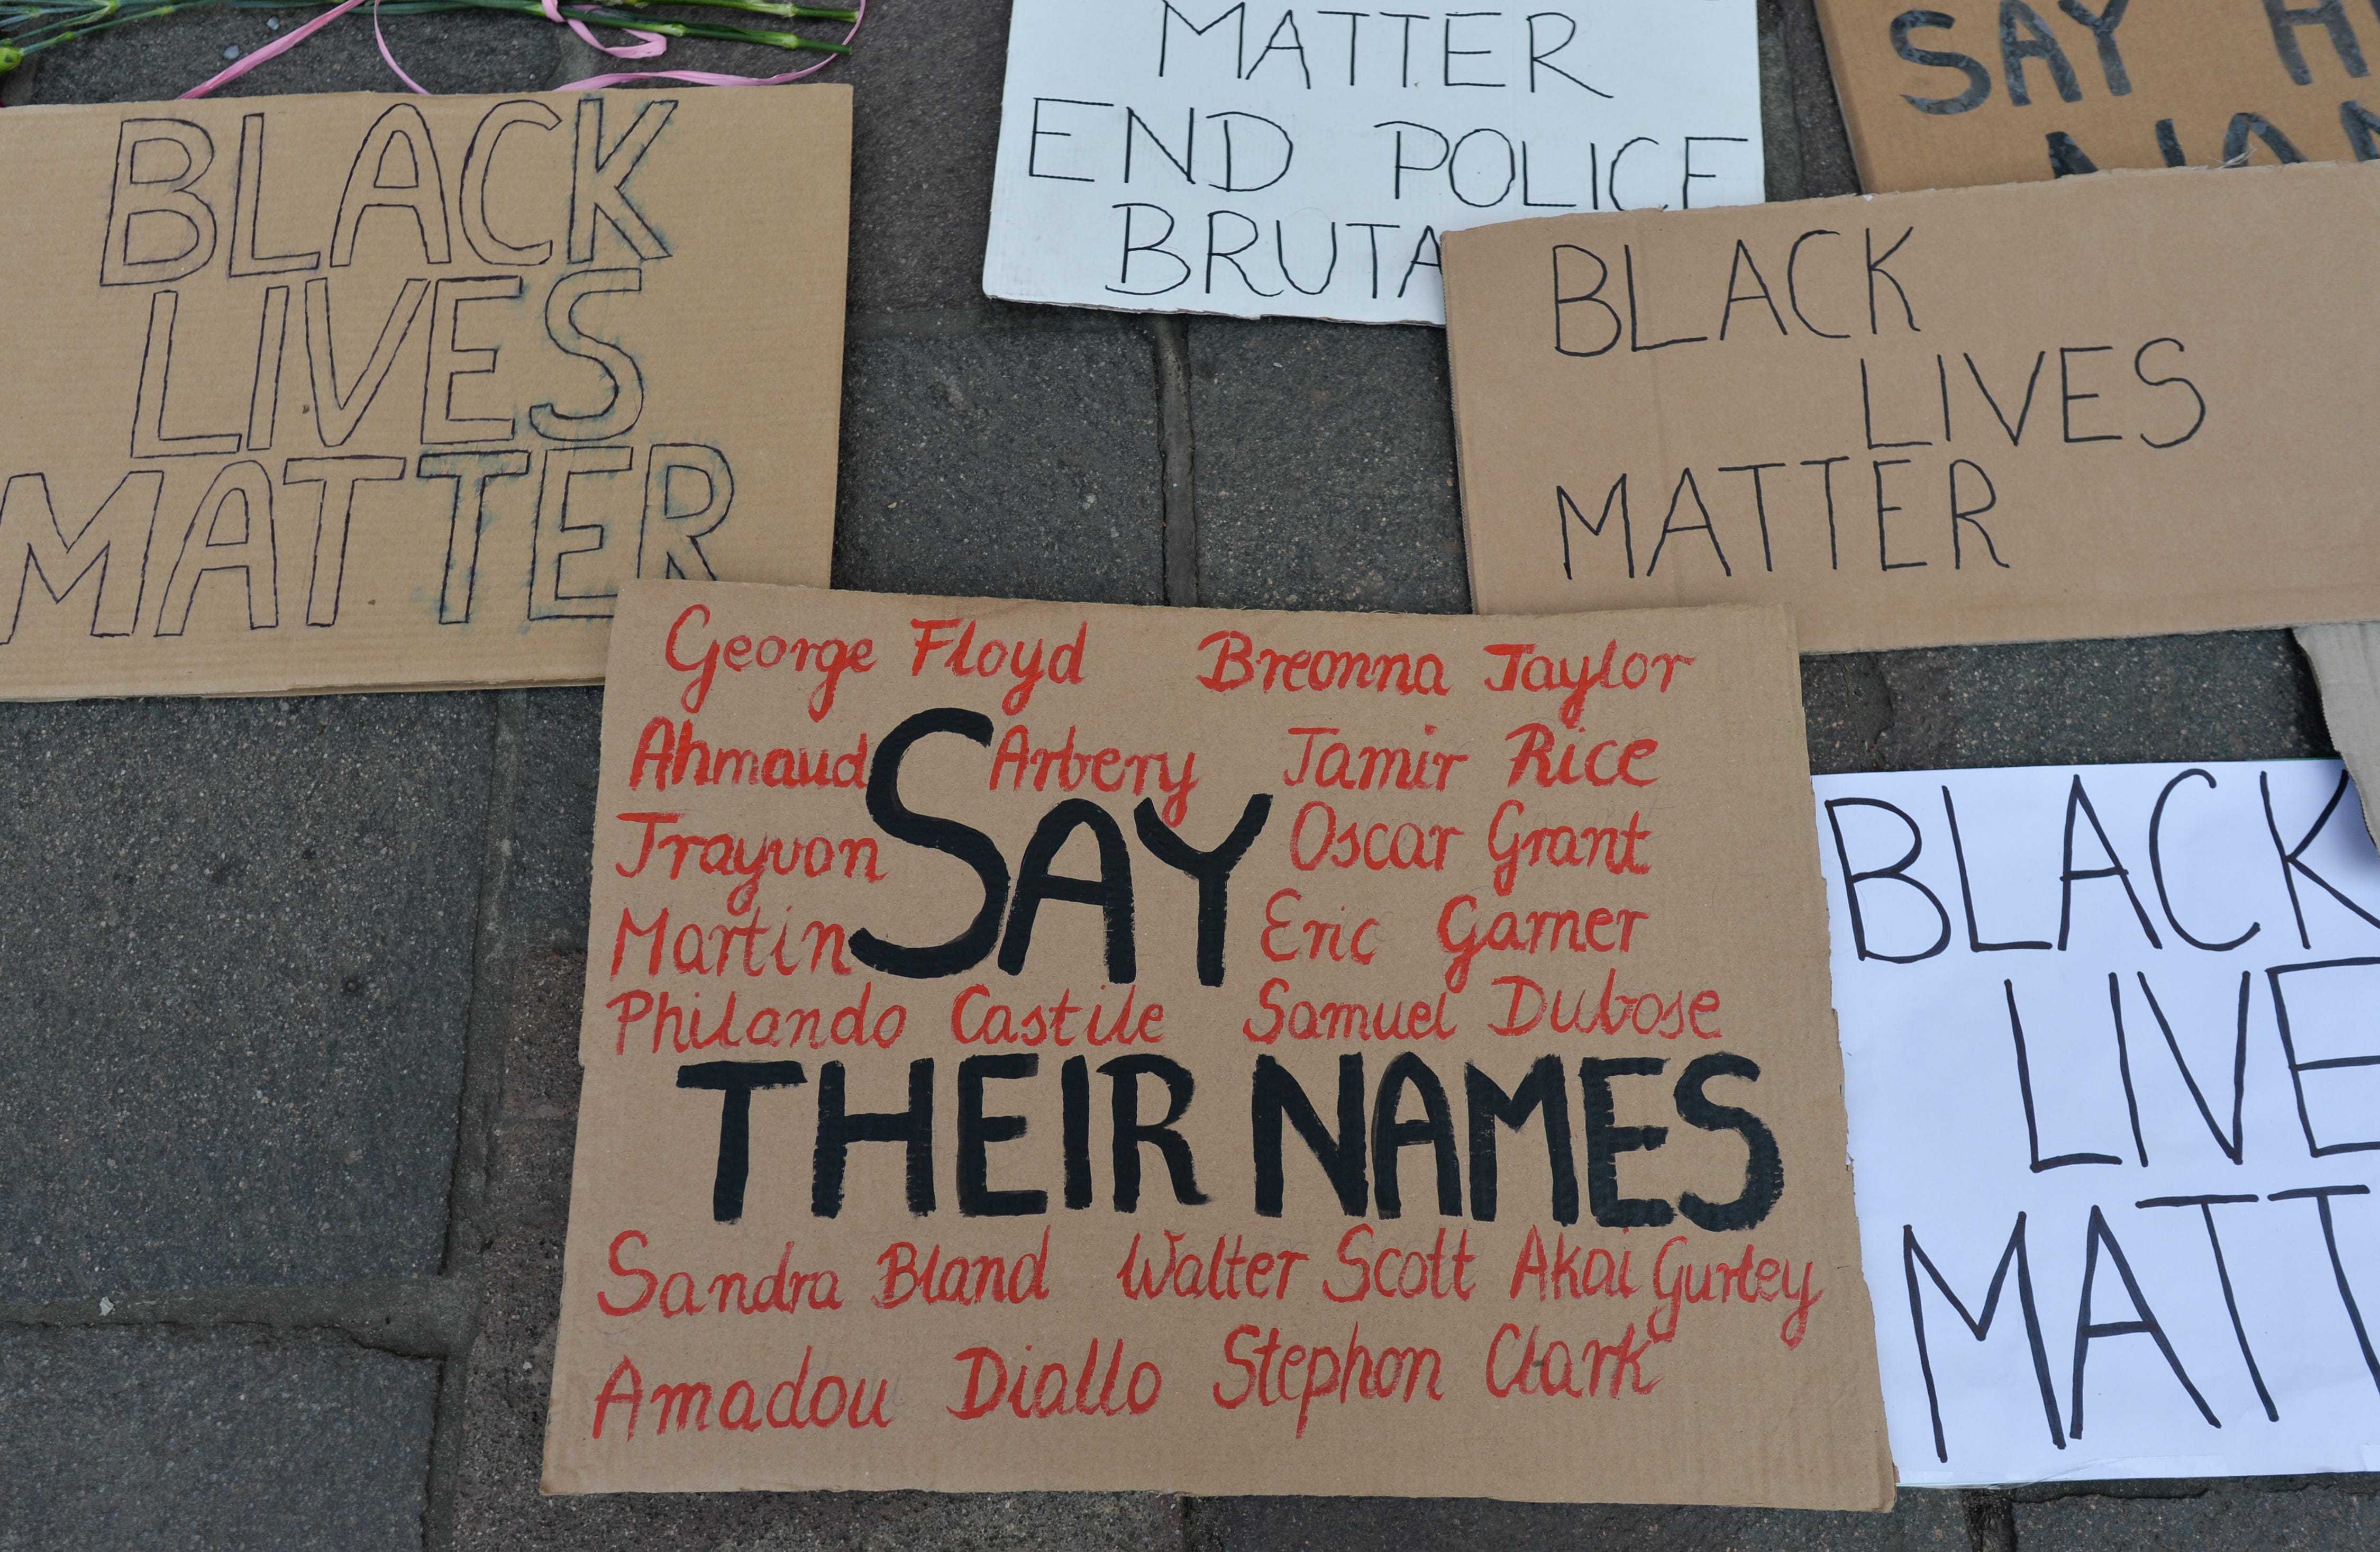 BLACK
LIVES
MATTER
MATTER
END POLICE
BRUTA
SAY H
BLACK
LIVES
MATTER
George Floyd Breonna Taylor
Ahmaud Arbery Tamir Rice
Trayvon Oscar Grant
SAY
Martin Eric Garner
Philando Castile Samuel Dubose
THEIR NAMES
Sandra Bland Walter Scott Akai Gurley
Amadou Diallo Stephon Clark
BLACK
LIVE
MATT